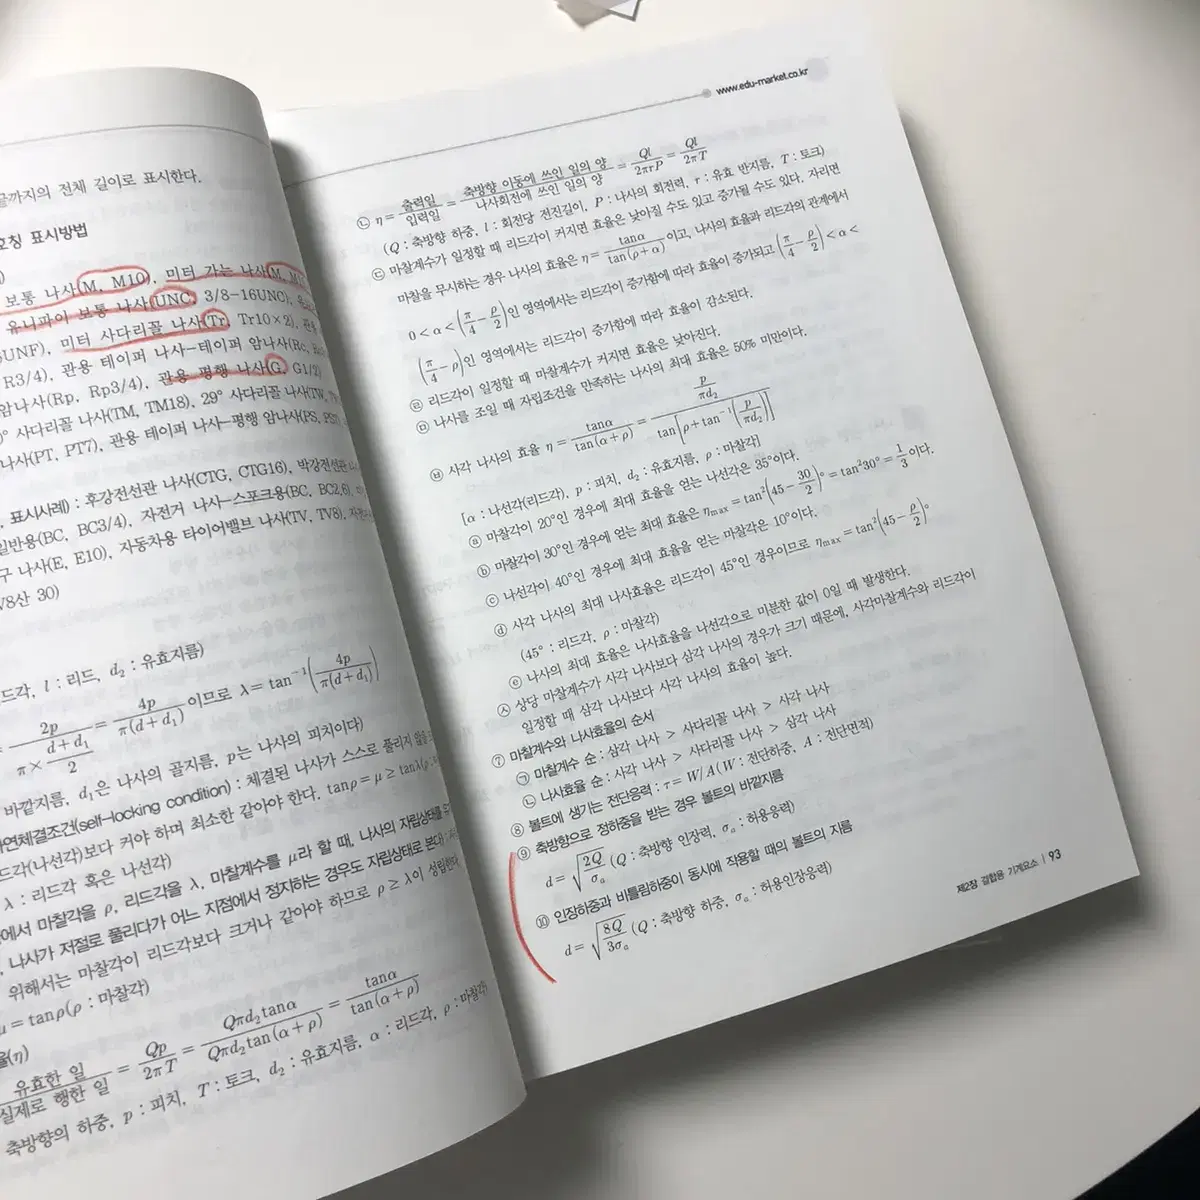 끝까지의 전체 길이로 표시한다.
호칭 표시방법
보통 나사(M, M10), 미터 가는 나사(M,
유니파이 보통 나사(UNC, 3/8-16UNC),
UNF), 미터 사다리꼴 나사(Tr, Tr10×2), 관용
R3/4), 관용 테이퍼 나사-테이퍼 암나사(Rc,
암나사(Rp, Rp3/4), 관용 평행 나사(G, G1/2)
사다리꼴 나사(TM, TM18), 29° 사다리꼴 나사(TW,
나사(PT, PT7), 관용 테이퍼 나사-평행 암나사(PS,
표시사례) : 후강전선관 나사(CTG, CTG16), 박강전선관
일반용(BC, BC3/4), 자전거 나사-스포크용(BC, BC2.6),
구 나사(E, E10), 자동차용 타이어밸브 나사(TV, TV8),
V8산 30)
드각, l : 리드, d₂ : 유효지름)
2p / (π × (d+d₁)/2) = 4p / π(d+d₁) 이므로 λ = tan⁻¹(4p / π(d+d₁))
바깥지름, d₁은 나사의 골지름, p는 나사의 피치이다)
자연체결조건(self-locking condition) : 체결된 나사가 스스로 풀리지 않을
드각(나선각)보다 커야 하며 최소한 같아야 한다. tanρ = μ ≥ tanλ(ρ :
λ : 리드각 혹은 나선각)
에서 마찰각을 ρ, 리드각을 λ, 마찰계수를 μ라 할 때, 나사의 자립상태를
나사가 저절로 풀리다가 어느 지점에서 정지하는 경우도 자립상태로 본다
위해서는 마찰각이 리드각보다 크거나 같아야 하므로 ρ ≥ λ이 성립한다
μ = tanρ(ρ : 마찰각)
율(η)
유효한 일 / 실제로 행한 일 = Qp / 2πT = Qπd₂tanα / Qπd₂tan(α+ρ) = tanα / tan(α+ρ)
축방향의 하중, p : 피치, T : 토크, d₂ : 유효지름, α : 리드각, ρ : 마찰각)
www.edu-market.co.kr
㉡ η = 출력일 / 입력일 = 축방향 이동에 쓰인 일의 양 / 나사회전에 쓰인 일의 양 = Ql / 2πrP = Ql / 2πT
(Q : 축방향 하중, l : 회전당 전진길이, P : 나사의 회전력, r : 유효 반지름, T : 토크)
㉢ 마찰계수가 일정할 때 리드각이 커지면 효율은 낮아질 수도 있고 증가될 수도 있다. 자리면
마찰을 무시하는 경우 나사의 효율은 η = tanα / tan(ρ+α) 이고, 나사의 효율과 리드각의 관계에서
0 < α < (π/4 − ρ/2)인 영역에서는 리드각이 증가함에 따라 효율이 증가되고 (π/4 − ρ/2) < α <
(π/4 − ρ)인 영역에서는 리드각이 증가함에 따라 효율이 감소된다.
㉣ 리드각이 일정할 때 마찰계수가 커지면 효율은 낮아진다.
㉤ 나사를 조일 때 자립조건을 만족하는 나사의 최대 효율은 50% 미만이다.
㉥ 사각 나사의 효율 η = tanα / tan(α+ρ) = (p / πd₂) / tan[ρ + tan⁻¹(p / πd₂)]
[α : 나선각(리드각), p : 피치, d₂ : 유효지름, ρ : 마찰각]
ⓐ 마찰각이 20°인 경우에 최대 효율을 얻는 나선각은 35°이다.
ⓑ 마찰각이 30°인 경우에 얻는 최대 효율은 ηmax = tan²(45 − 30/2)° = tan²30° = 1/3 이다.
ⓒ 나선각이 40°인 경우에 최대 효율을 얻는 마찰각은 10°이다.
ⓓ 사각 나사의 최대 나사효율은 리드각이 45°인 경우이므로 ηmax = tan²(45 − ρ/2)°
(45° : 리드각, ρ : 마찰각)
ⓔ 나사의 최대 효율은 나사효율을 나선각으로 미분한 값이 0일 때 발생한다.
㉦ 상당 마찰계수가 사각 나사보다 삼각 나사의 경우가 크기 때문에, 사각마찰계수와 리드각이
일정할 때 삼각 나사보다 사각 나사의 효율이 높다.
⑦ 마찰계수와 나사효율의 순서
㉠ 마찰계수 순 : 삼각 나사 > 사다리꼴 나사 > 사각 나사
㉡ 나사효율 순 : 사각 나사 > 사다리꼴 나사 > 삼각 나사
⑧ 볼트에 생기는 전단응력 : τ = W/A (W : 전단하중, A : 전단면적)
⑨ 축방향으로 정하중을 받는 경우 볼트의 바깥지름
d = √(2Q / σₐ) (Q : 축방향 인장력, σₐ : 허용응력)
⑩ 인장하중과 비틀림하중이 동시에 작용할 때의 볼트의 지름
d = √(8Q / 3σₐ) (Q : 축방향 하중, σₐ : 허용인장응력)
제2장 결합용 기계요소 | 93